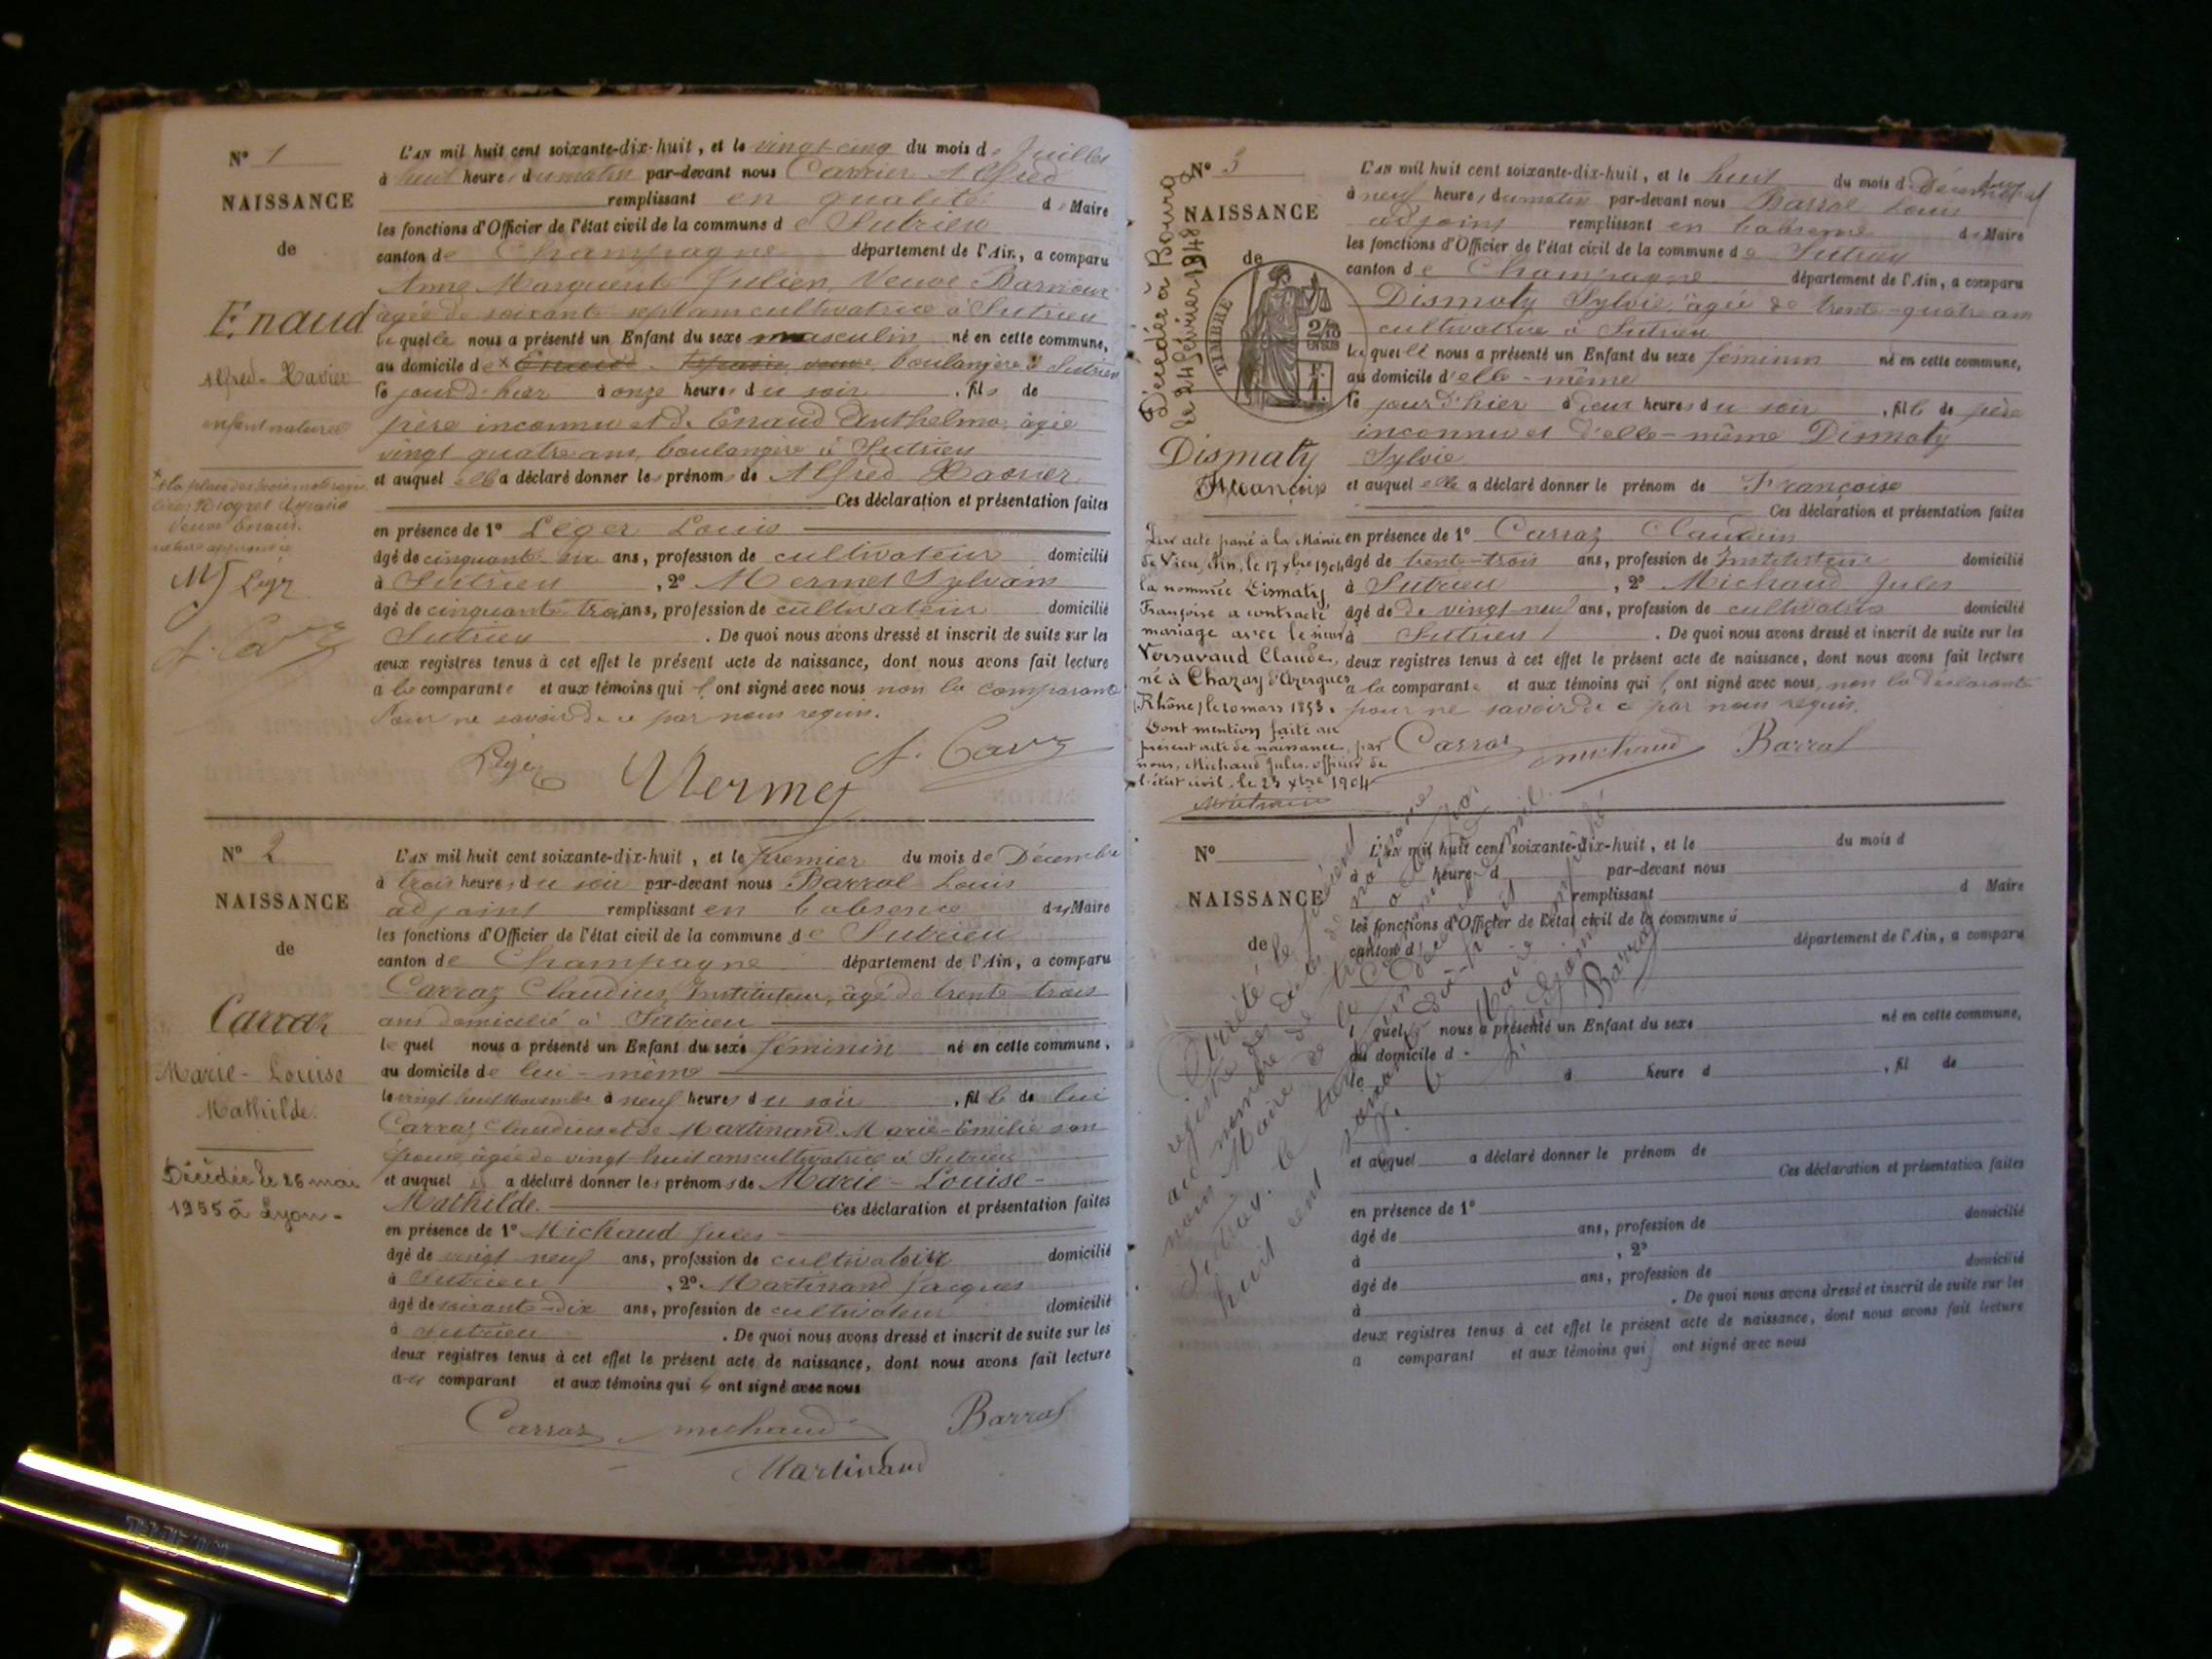 N° 1
NAISSANCE
de
Enaud
Alfred-Xavier
enfant naturel
Veuve Enaud.
MJ Léger
A. Carrier
L'AN mil huit cent soixante-dix-huit, et le vingt-cinq du mois de Juillet
à huit heures du matin par-devant nous Carrier Alfred
remplissant en qualité de Maire
les fonctions d'Officier de l'état civil de la commune de Sutrieu
canton de Champagne département de l'Ain, a comparu
Anne Marguerite Julien, Veuve
âgée de soixante-sept ans cultivatrice à Sutrieu
laquelle nous a présenté un Enfant du sexe masculin né en cette commune,
au domicile de × Enaud boulangère à Sutrieu
le jour d'hier à onze heures du soir, fils de
père inconnu et de Enaud Anthelma, âgée
vingt quatre ans, boulangère à Sutrieu
et auquel elle a déclaré donner les prénoms de Alfred Xavier
Ces déclaration et présentation faites
en présence de 1° Leger Louis
âgé de cinquante-six ans, profession de cultivateur domicilié
à Sutrieu, 2° Mermet Sylvain
âgé de cinquante trois ans, profession de cultivateur domicilié
Sutrieu. De quoi nous avons dressé et inscrit de suite sur les
deux registres tenus à cet effet le présent acte de naissance, dont nous avons fait lecture
a la comparante et aux témoins qui l'ont signé avec nous non la comparante
Pour ne savoir de ce par nous requis.
Léger Mermet A. Carrier
N° 2
NAISSANCE
de
Carraz
Marie-Louise
Mathilde.
Décédée le 26 mai
1955 à Lyon-
L'AN mil huit cent soixante-dix-huit, et le premier du mois de Décembre
à trois heures du soir par-devant nous Barral Louis
adjoint remplissant en l'absence du Maire
les fonctions d'Officier de l'état civil de la commune de Sutrieu
canton de Champagne département de l'Ain, a comparu
Carraz Claudius, Instituteur, âgé de trente-trois
ans domicilié à Sutrieu
lequel nous a présenté un Enfant du sexe féminin né en cette commune,
au domicile de lui-même
le vingt huit Novembre à neuf heures du soir, fille de lui
Carraz Claudius et de Martinand Marie-Emilie son
épouse, âgée de vingt-huit ans cultivatrice à Sutrieu
et auquel il a déclaré donner les prénoms de Marie-Louise-
Mathilde. Ces déclaration et présentation faites
en présence de 1° Michaud Jules
âgé de vingt-neuf ans, profession de cultivateur domicilié
à Sutrieu, 2° Martinand Jacques
âgé de soixante-dix ans, profession de cultivateur domicilié
à Sutrieu. De quoi nous avons dressé et inscrit de suite sur les
deux registres tenus à cet effet le présent acte de naissance, dont nous avons fait lecture
au comparant et aux témoins qui l'ont signé avec nous
Carraz michaud Barral
Martinand
N° 3
NAISSANCE
de
Décédée à Bourg
le 24 février 1948
TIMBRE
2/10
EN SUS
Dismaty
Françoise
Par acte passé à la Mairie
de Vieu, Ain, le 17 xbre 1904
la nommée Dismaty
Françoise a contracté
mariage avec le sieur
Versavaud Claude,
né à Chazay d'Azergues
(Rhône) le 20 mars 1853.
Dont mention faite au
présent acte de naissance, par
nous, Michaud Jules, officier de
l'état civil, le 23 xbre 1904
L'AN mil huit cent soixante-dix-huit, et le huit du mois de Décembre
à neuf heures du matin par-devant nous Barral Louis
adjoint remplissant en l'absence de Maire
les fonctions d'Officier de l'état civil de la commune de Sutrieu
canton de Champagne département de l'Ain, a comparu
Dismaty Sylvie, âgée de trente-quatre ans
cultivatrice à Sutrieu
laquelle nous a présenté un Enfant du sexe féminin né en cette commune,
au domicile d'elle-même
le jour d'hier à deux heures du soir, fille de père
inconnu et d'elle-même Dismaty
Sylvie
et auquel elle a déclaré donner le prénom de Françoise
Ces déclaration et présentation faites
en présence de 1° Carraz Claudius
âgé de trente-trois ans, profession de Instituteur domicilié
à Sutrieu, 2° Michaud Jules
âgé de de vingt-neuf ans, profession de cultivateur domicilié
à Sutrieu. De quoi nous avons dressé et inscrit de suite sur les
deux registres tenus à cet effet le présent acte de naissance, dont nous avons fait lecture
a la comparante et aux témoins qui l'ont signé avec nous, non la déclarante
pour ne savoir de ce par nous requis.
Carraz michaud Barral
N°
NAISSANCE
de
L'AN mil huit cent soixante-dix-huit, et le du mois d
à heure d par-devant nous
remplissant d Maire
les fonctions d'Officier de l'état civil de la commune d
canton d département de l'Ain, a comparu
l quel nous a présenté un Enfant du sexe né en cette commune,
au domicile d
le à heure d , fil de
et auquel a déclaré donner le prénom de
Ces déclaration et présentation faites
en présence de 1°
âgé de ans, profession de domicilié
à , 2°
âgé de ans, profession de domicilié
à . De quoi nous avons dressé et inscrit de suite sur les
deux registres tenus à cet effet le présent acte de naissance, dont nous avons fait lecture
a comparant et aux témoins qui ont signé avec nous
Arrêté le présent
registre des actes de naissance
au nombre de trois
nous Maire de
Sutrieu, le
huit cent soixante-dix-huit
Barral